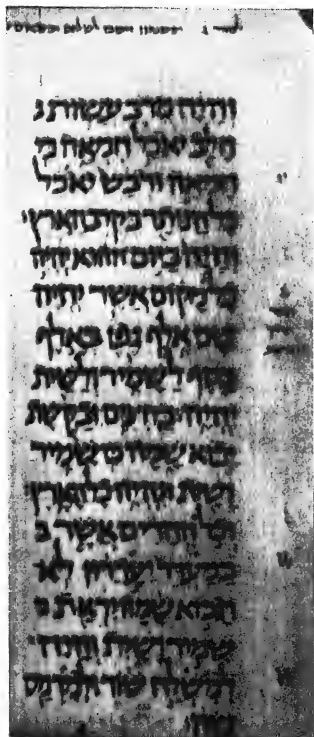 והיה מרב עשות
חלב יאכל חמאה כי
חמאה ודבש יאכל
כל הנותר בקרב הארץ
והיה ביום ההוא יהיה
כל מקום אשר יהיה
שם אלף גפן באלף
כסף לשמיר ולשית
יהיה בחצים ובקשת
יבא שמה כי שמיר
ושית תהיה כל הארץ
וכל ההרים אשר ב
במעדר יעדרון לא
תבוא שמה יראת
שמיר ושית והיה
למשלח שור ולמרמס